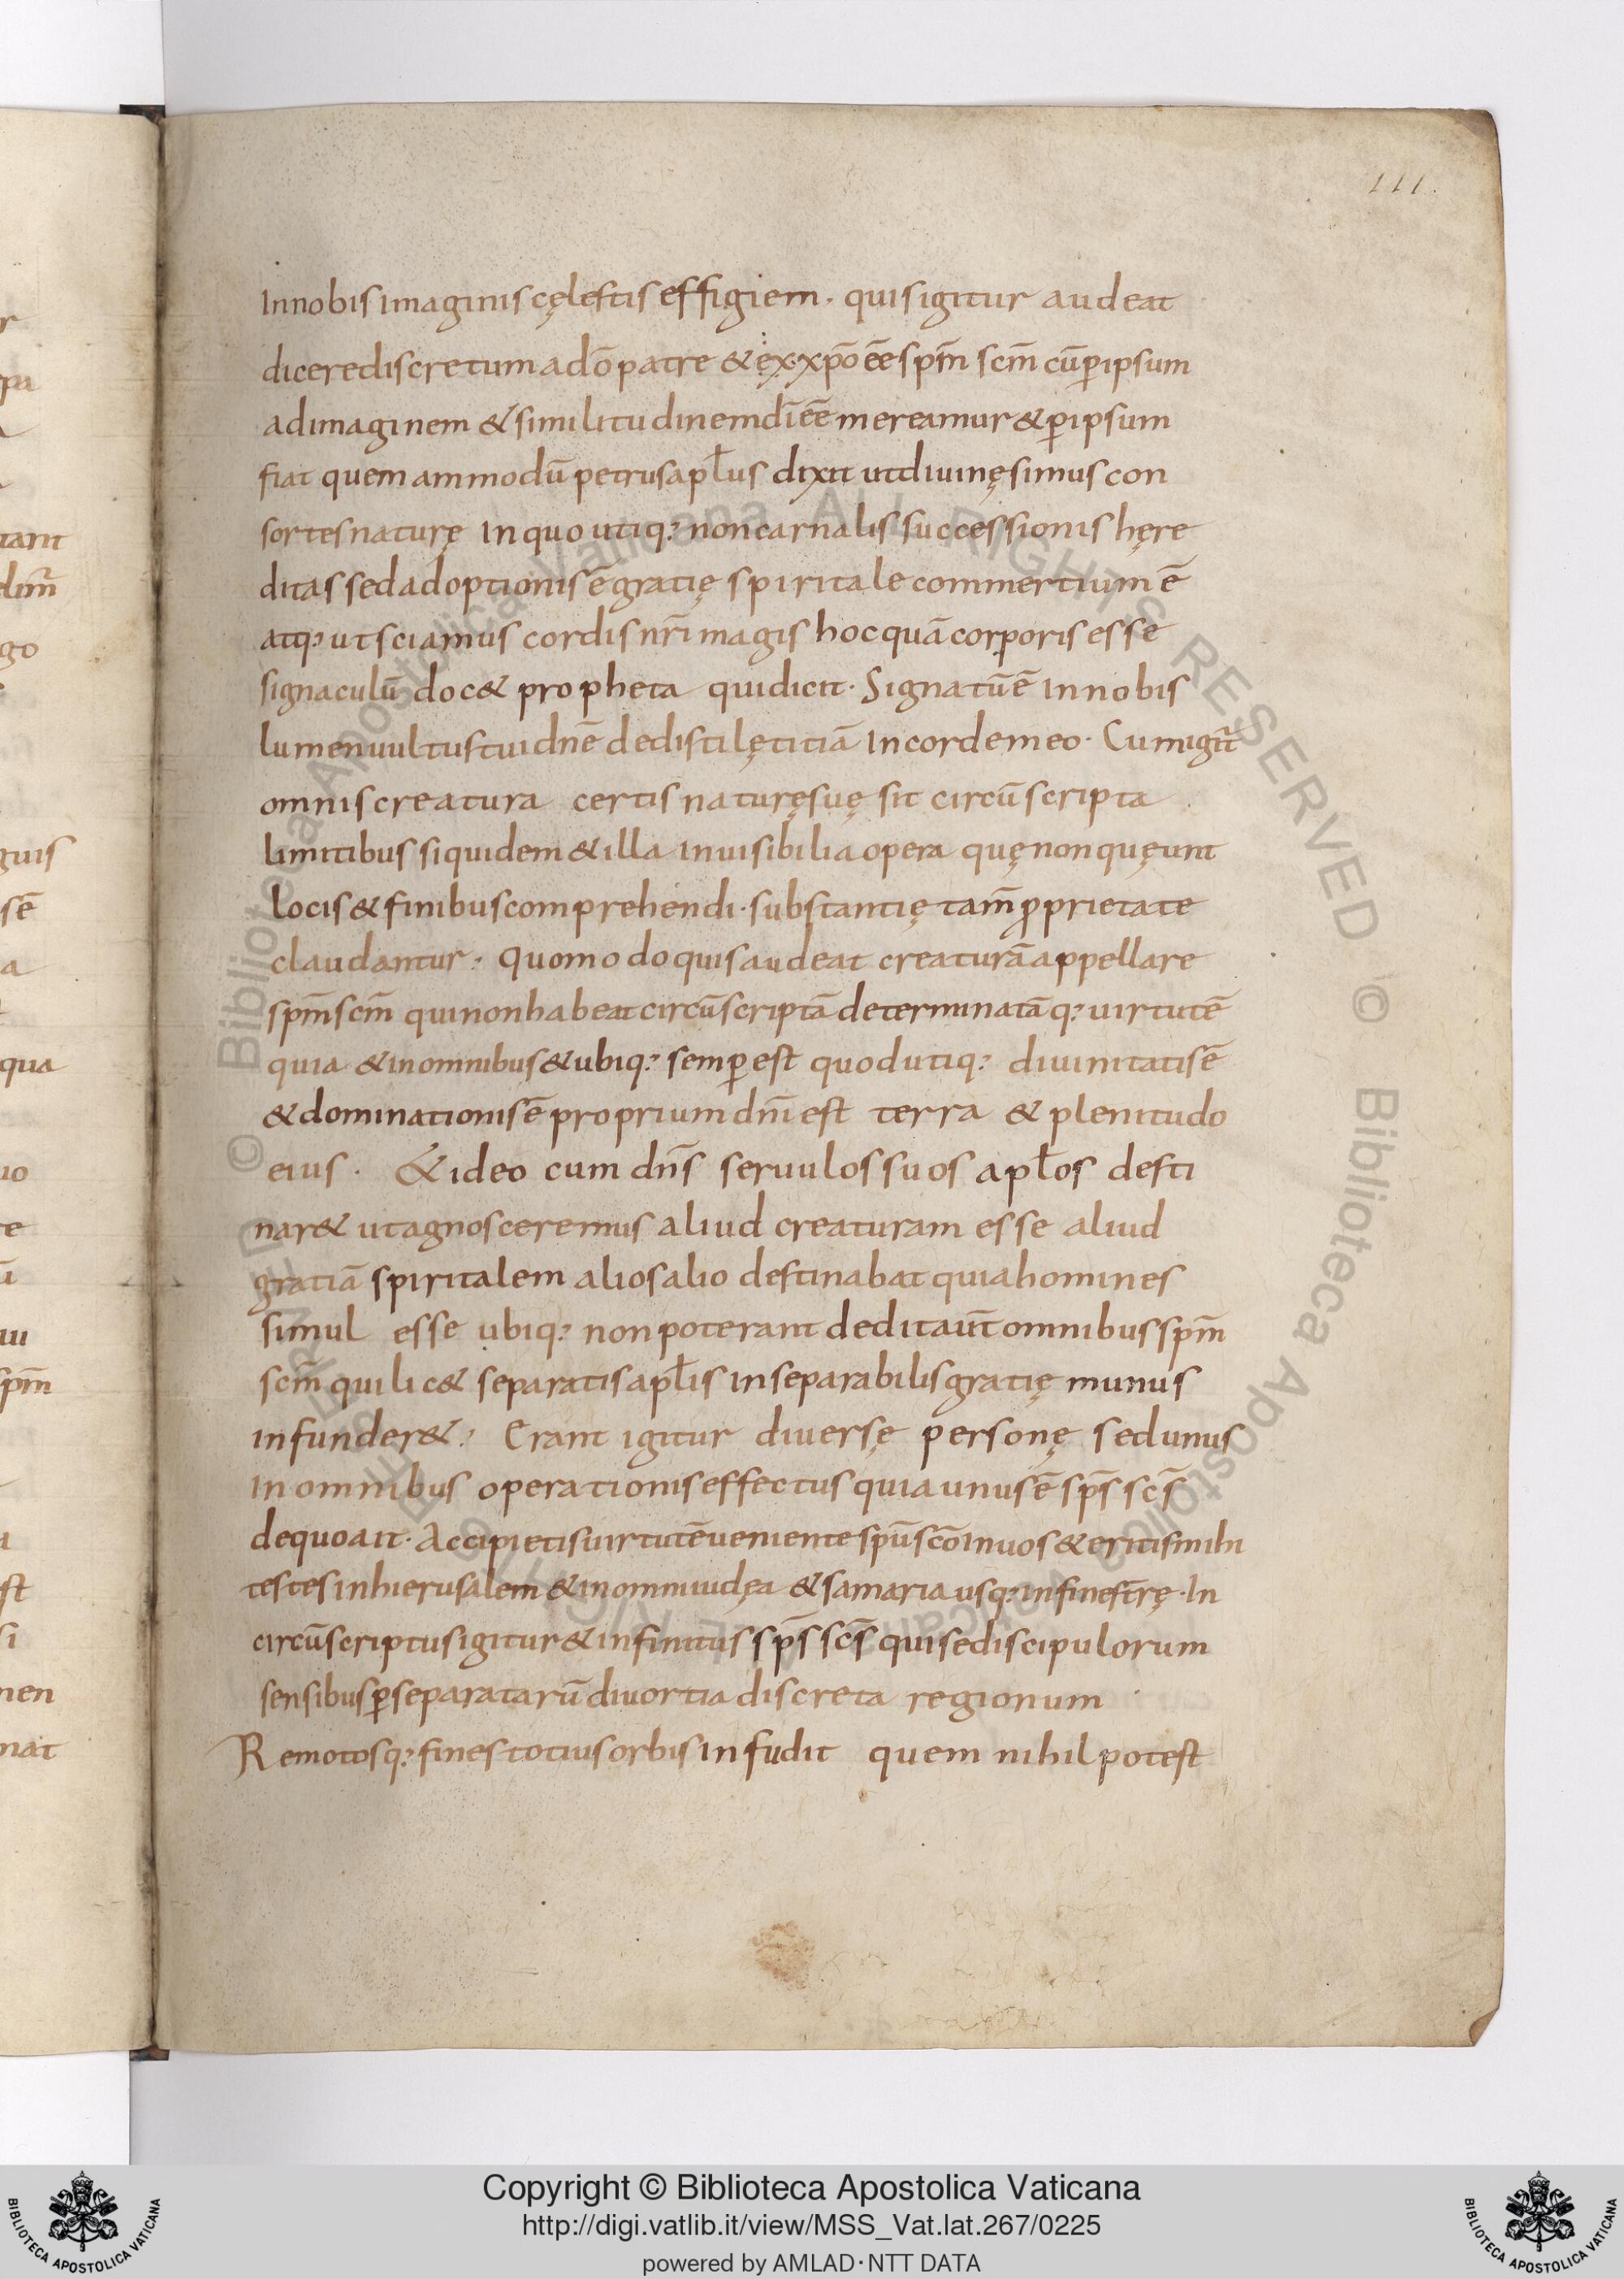 111.
In nobis imaginis cęlestis effigiem. quis igitur audeat
dicere discretum a dō patre & ex xp̄o ēē sp̄m sc̄m cū ꝑ ipsum
ad imaginem & similitudinem dī ēē mereamur & ꝑ ipsum
fiat quemammodū petrus apl̄us dixit ut divinę simus con
sortes naturę In quo utiq; non carnalis successionis hęre
ditas sed adoptionis ē gratię spiritale commertium ē
atq; ut sciamus cordis nr̄i magis hoc quā corporis esse
signaculū doc& propheta qui dicit. Signatū ē In nobis
lumen uultus tui dn̄e dedisti lętitiā In corde meo. Cum igit̄
omnis creatura certis naturę suę sit circūscripta
limitibus siquidem & illa inuisibilia opera quę non quęunt
locis & finibus comprehendi. substantię tam̄ ꝓprietate
claudantur. Quomodo quis audeat creaturā appellare
sp̄m sc̄m qui non habeat circūscriptā determinatāq; uirtutē
quia & in omnibus & ubiq; semꝑ est quod utiq; diuinitatis ē
& dominationis ē proprium dn̄i est terra & plenitudo
eius. & ideo cum dn̄s seruulos suos apl̄os desti
nar& ut agnosceremus aliud creaturam esse aliud
gratiā spiritalem alios alio destinabat quia homines
simul esse ubiq; non poterant dedit aūt omnibus sp̄m
sc̄m qui lic& separatis apl̄is inseparabilis gratię munus
infunder&. Erant igitur diuersę personę sed unus
In omnibus operationis effectus quia unus ē sp̄s sc̄s
de quo ait. Accipietis uirtutē ueniente sp̄u sc̄o In uos & eritis mihi
testes in hierusalem & in omni iudęa & samaria usq; in fines t̄rę. In
circūscriptus igitur & infinitus sp̄s sc̄s qui se discipulorum
sensibus ꝑ separatarū diuortia discreta regionum
Remotosq; fines totius orbis infudit quem nihil potest
© Biblioteca Apostolica Vaticana ALL RIGHTS RESERVED © Biblioteca Apostolica Vaticana ALL RIGHTS RESERVED
Copyright © Biblioteca Apostolica Vaticana
http://digi.vatlib.it/view/MSS_Vat.lat.267/0225
powered by AMLAD·NTT DATA
BIBLIOTECA APOSTOLICA VATICANA
BIBLIOTECA APOSTOLICA VATICANA